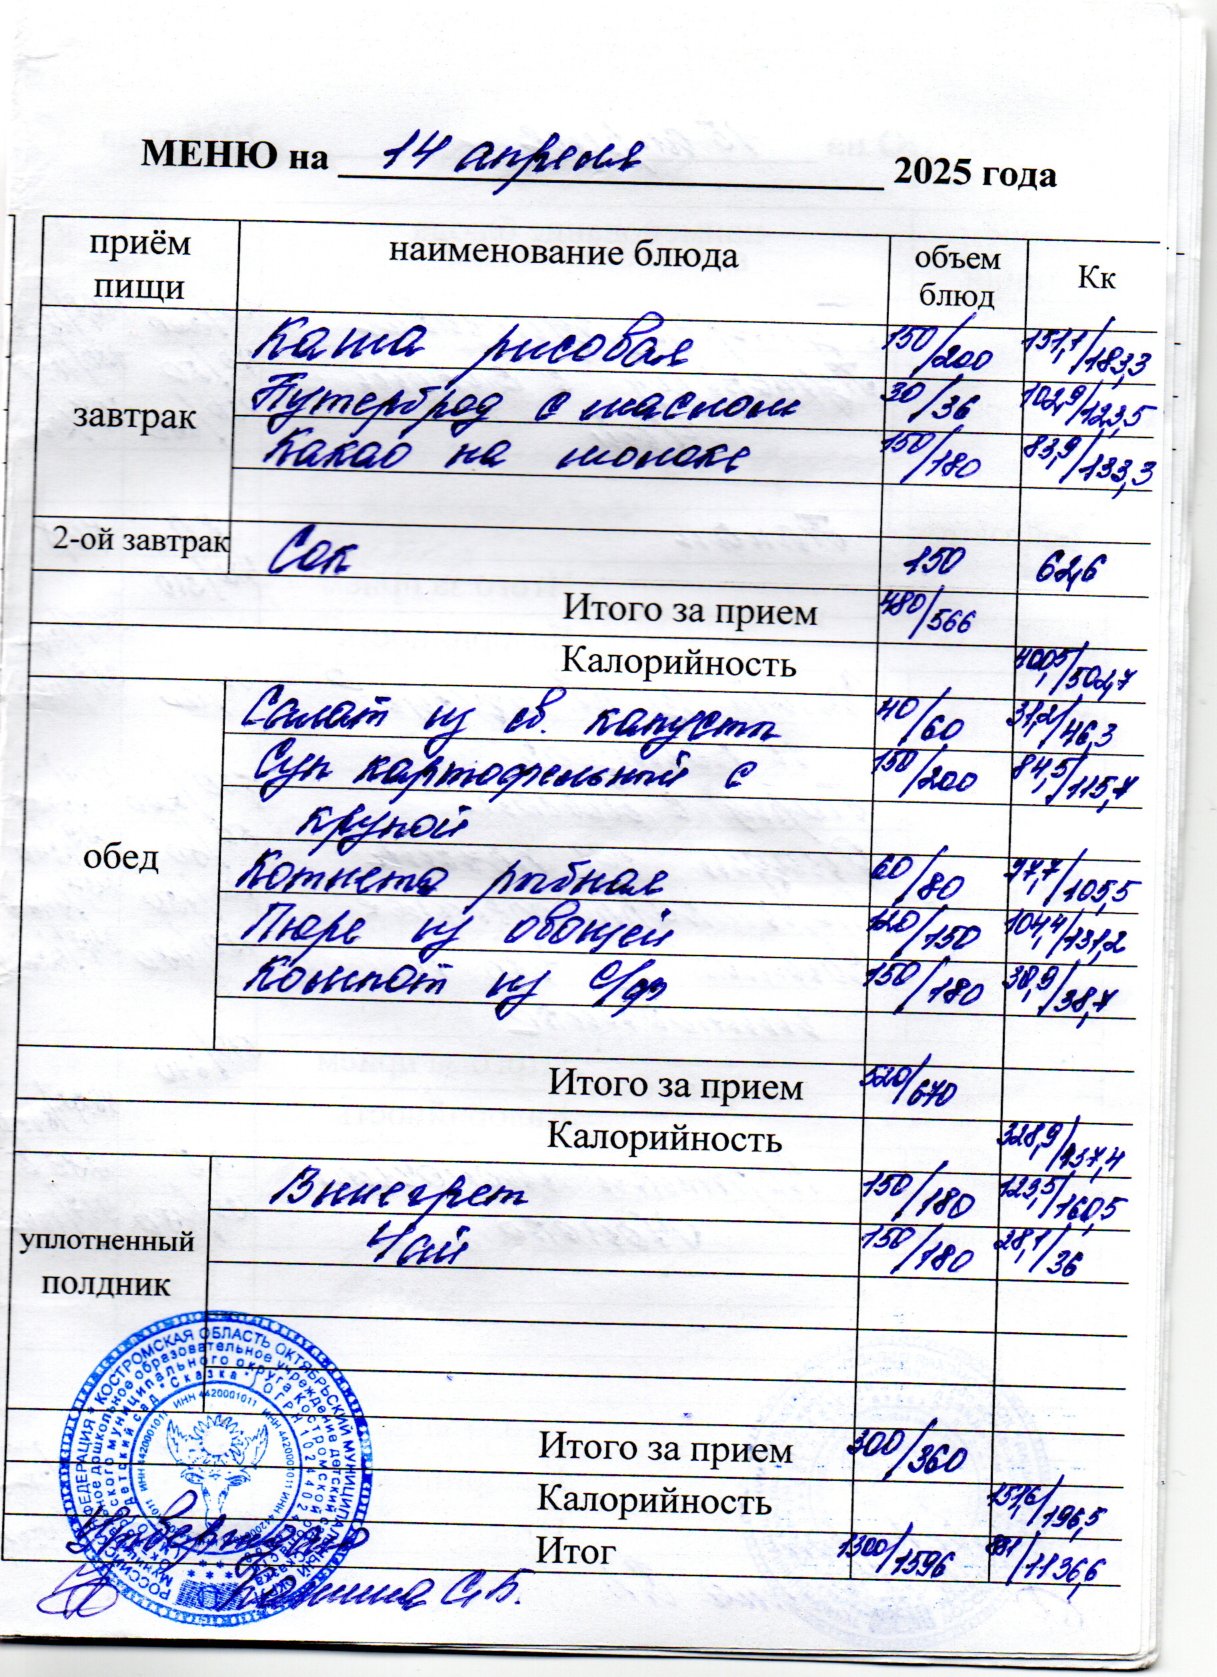 МЕНЮ на 14 апреля 2025 года
приём пищи наименование блюда объем блюд Кк
завтрак
Каша рисовая 150/200 151,1/183,3
Бутерброд с маслом 30/36 102,9/123,5
Какао на молоке 150/180 83,9/133,3
2-ой завтрак Сок 150 62,6
Итого за прием 480/566
Калорийность 400,5/502,7
обед
Салат из св. капусты 40/60 31,2/46,3
Суп картофельный с 150/200 84,5/115,7
крупой
Котлета рыбная 60/80 77,7/105,5
Пюре из овощей 120/150 104,4/131,2
Компот из с/ф 150/180 30,9/38,7
Итого за прием 520/670
Калорийность 328,9/437,4
уплотненный полдник
Винегрет 150/180 123,5/160,5
Чай 150/180 28,1/36
Итого за прием 300/360
Калорийность 151,6/196,5
Итог 1300/1596 881/1136,6
РОССИЙСКАЯ ФЕДЕРАЦИЯ * КОСТРОМСКАЯ ОБЛАСТЬ ОКТЯБРЬСКИЙ МУНИЦИПАЛЬНЫЙ
дошкольное образовательное учреждение детский сад
муниципального округа Костромской области
Детский сад "Сказка"
ИНН 4420001011 ИНН 4420001011
С.Б.